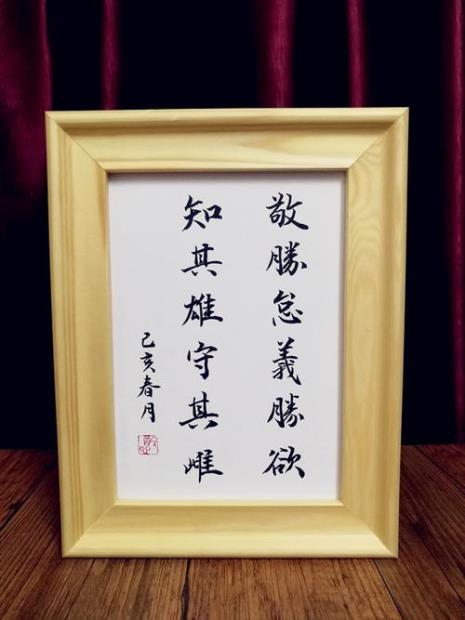 敬勝怠義勝欲
知其雄守其雌
己亥春月